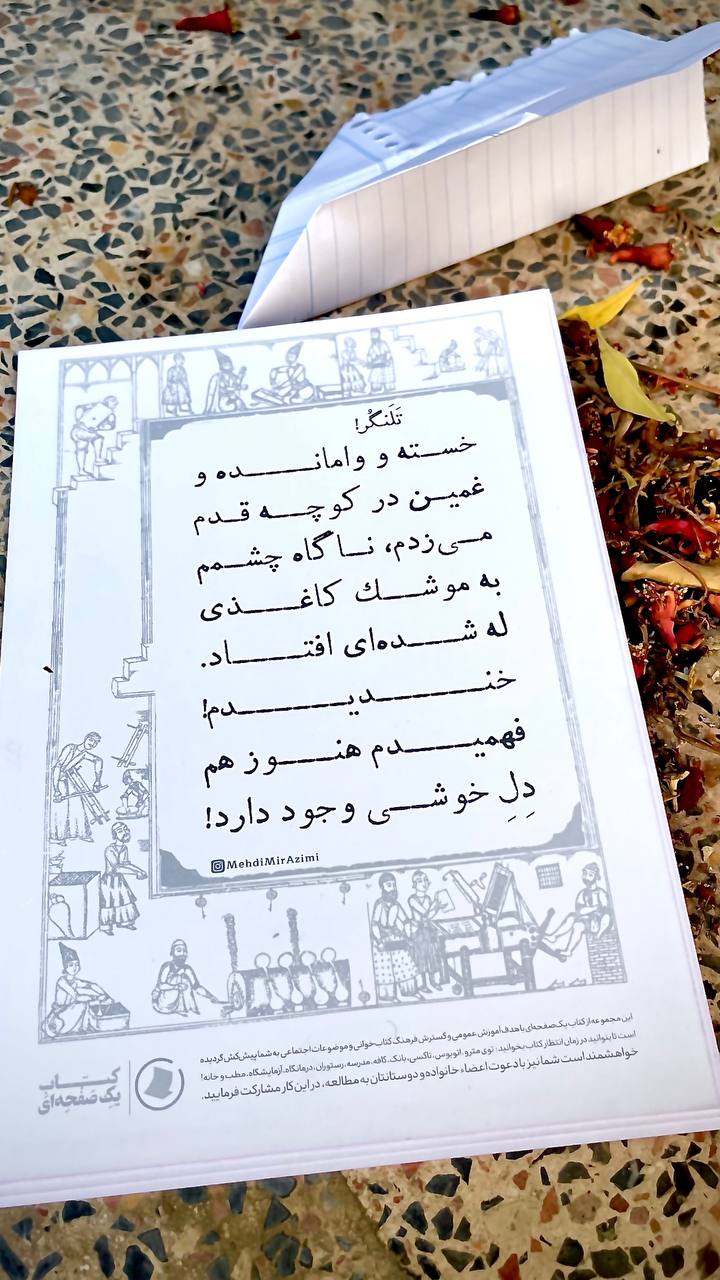 تَلَنگُر!
خسته و وامانده و
غمین در کوچه قدم
می‌زدم، ناگاه چشمم
به موشك کاغذی
له شده‌ای افتاد.
خندیدم!
فهمیدم هنوز هم
دِلِ خوشی وجود دارد!
MehdiMirAzimi
این مجموعه از کتاب یک‌صفحه‌ای با هدف آموزش عمومی و گسترش فرهنگ کتاب‌خوانی و موضوعات اجتماعی به شما پیش‌کش گردیده
است تا بتوانید در زمان انتظار کتاب بخوانید؛ توی مترو، اتوبوس، تاکسی، بانک، کافه، مدرسه، رستوران، درمانگاه، آزمایشگاه، مطب و خانه!
خواهشمند است شما نیز با دعوت اعضاء خانواده و دوستانتان به مطالعه، در این کار مشارکت فرمایید.
کتاب
یک صَفحِه‌ای